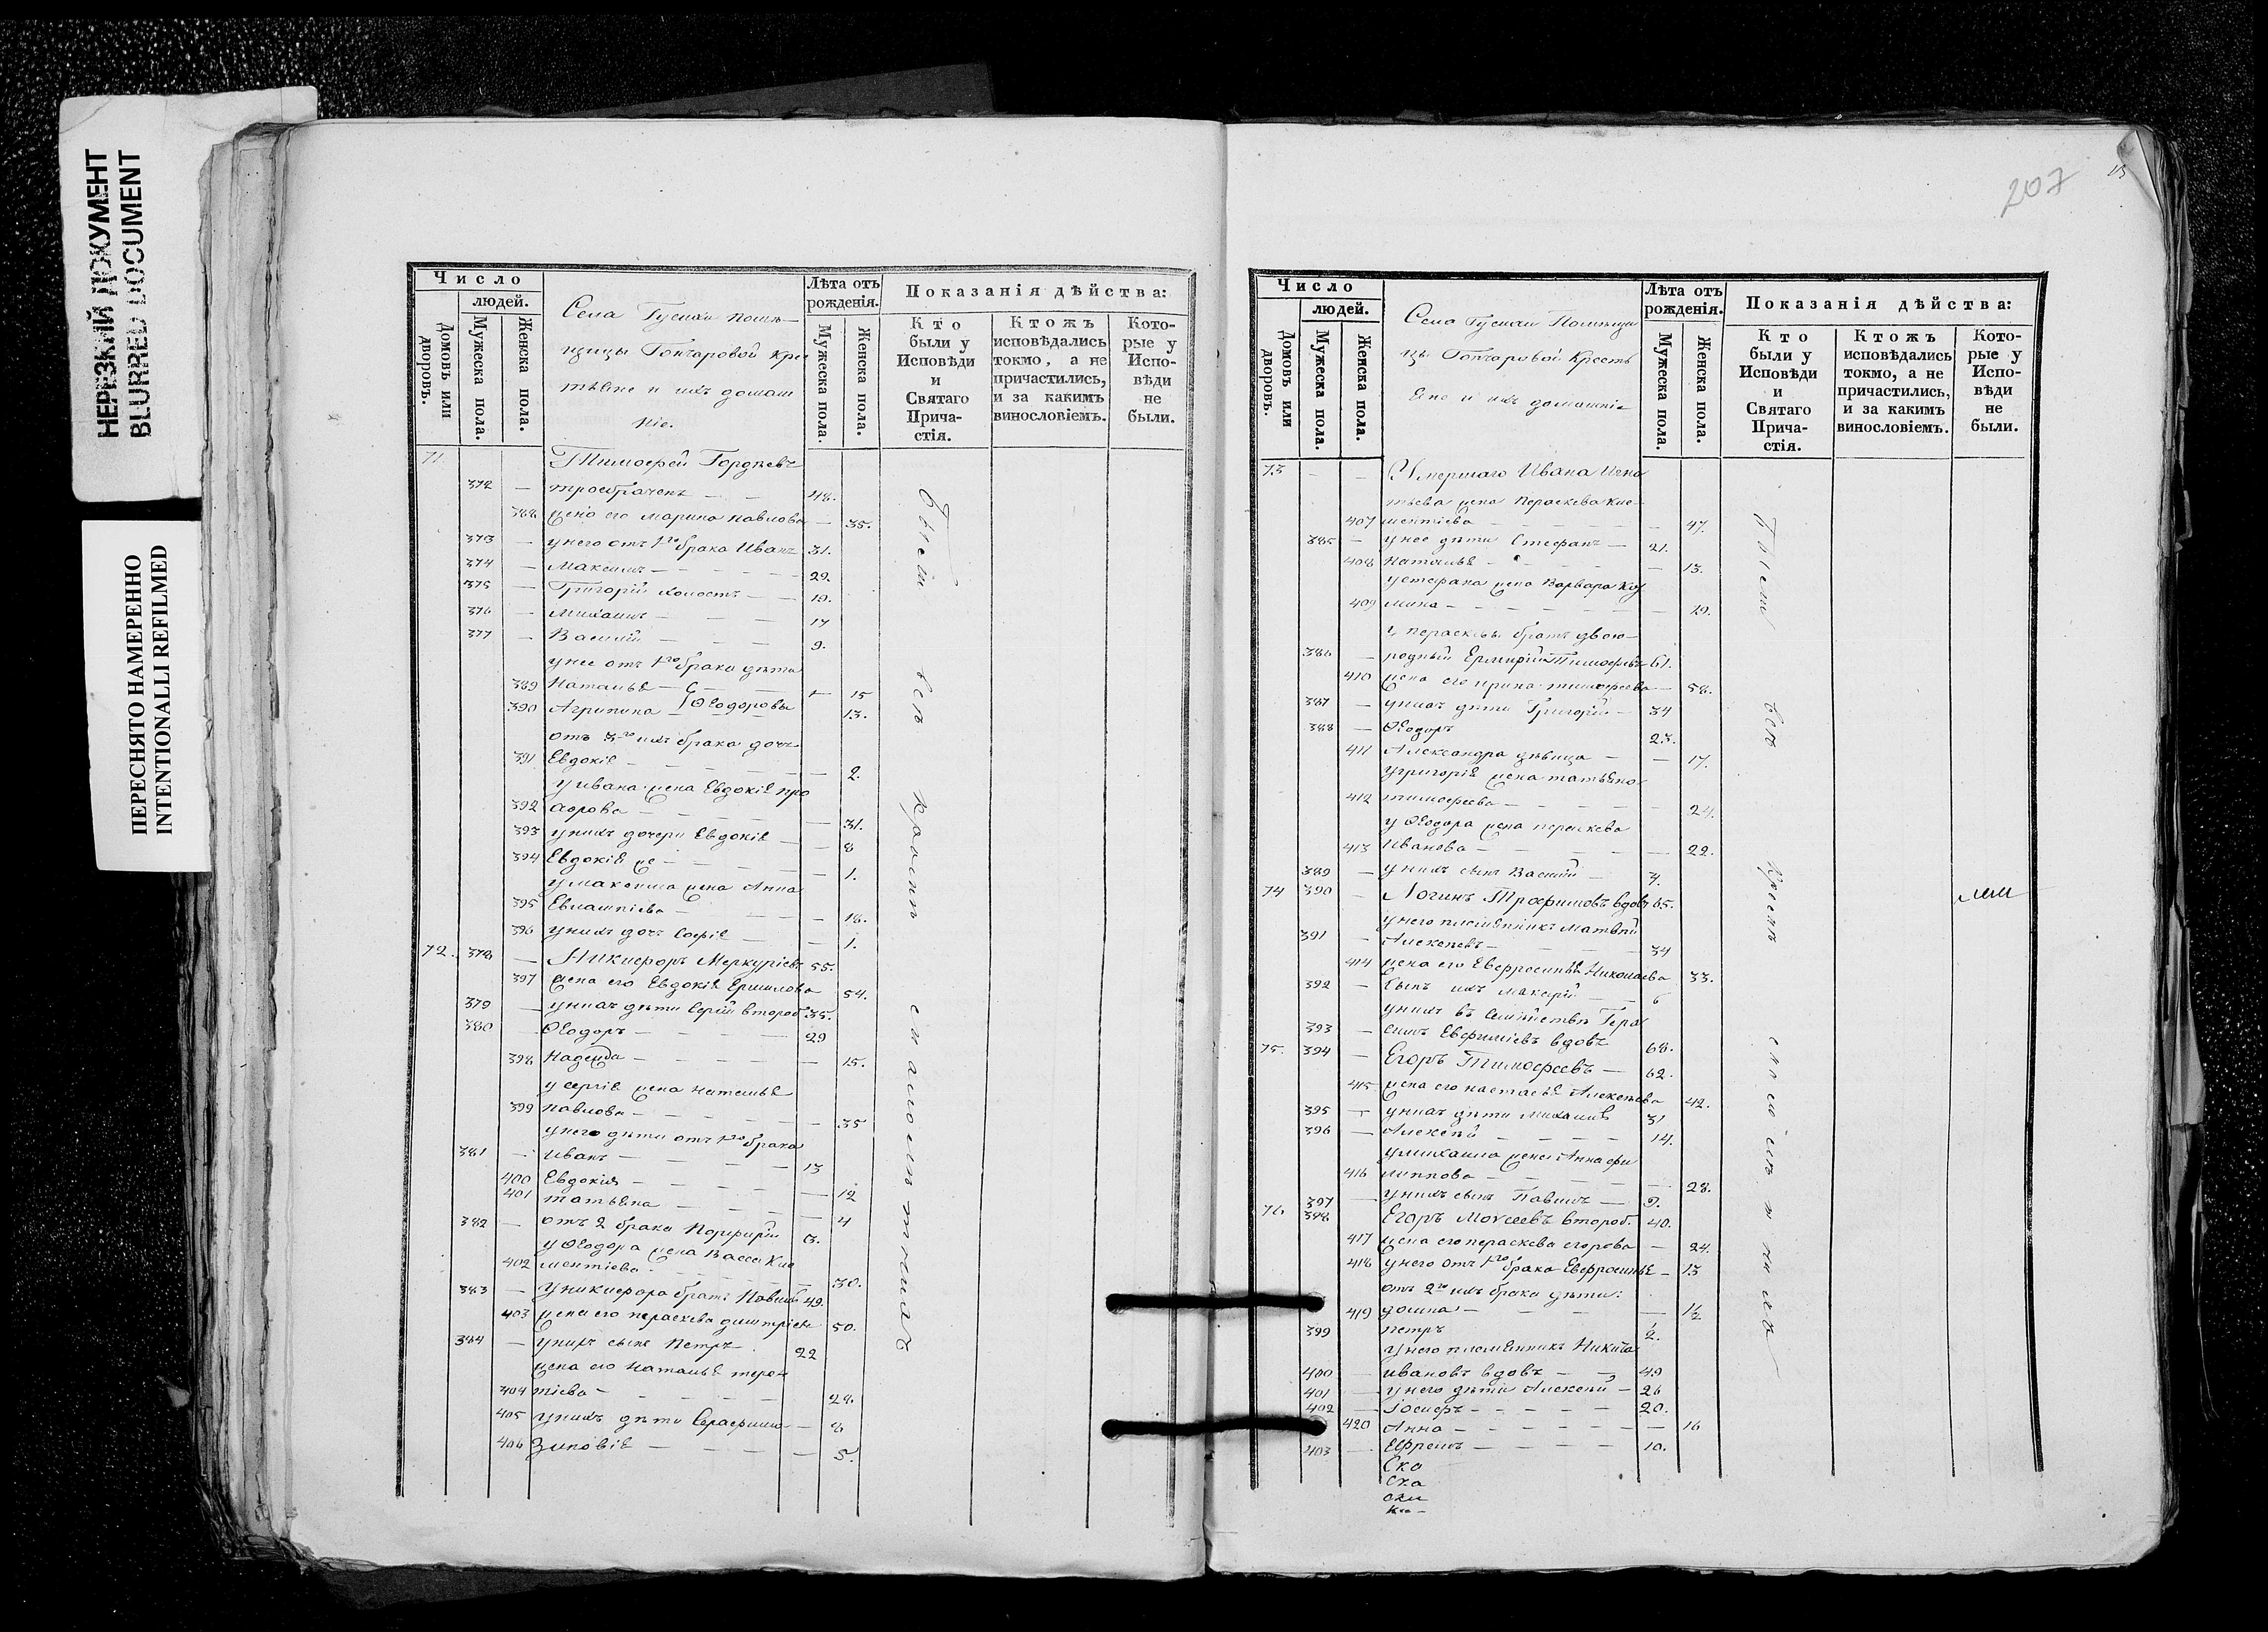 НЕРЕЗКИЙ ДОКУМЕНТ
BLURRED DOCUMENT
ПЕРЕСНЯТО НАМЕРЕННО
INTENTIONALLI REFILMED
Число
людей.
Домовъ или дворовъ.
Мужеска пола.
Женска пола.
Села Гусики помѣ-
щицы Гончаровой кре
стьяне и ихъ домаш
ніе.
Лѣта отъ рожденія.
Мужеска пола.
Женска пола.
Показанія дѣйства:
Кто были у Исповѣди и Святаго Прича- стія.
Ктожъ исповѣдались токмо, а не причастились, и за какимъ винословіемъ.
Кото- рые у Испо- вѣди не были.
71. Тимофей Гордѣевъ
372 — троебраченъ — — 48.
388 жена его Марина Павлова — 35.
373 — у него отъ 1го брака Иванъ 31.
374 — Максимъ — — — 22
375 — Григорій холостъ — — 19.
376 — Михаилъ — — — 17
377 — Василій — — — 9.
у нее отъ 1го брака дѣти
389 Наталья — — 15
390 Агрипина — Ѳеодоровы 13.
отъ 3го ихъ брака дочь
391 Евдокія — — — 2.
у Ивана жена Евдокія
392 — — 31.
393 у нихъ дочери Евдокія — 8
394 Евдокія же — — — 1.
у Максима жена Анна
395 Евлампіева — — — 18.
396 у нихъ дочь Софія — — 1.
72. 378 — Никифоръ Меркуріевъ 55.
397 жена его Евдокія Ермилова 54.
379 — у нихъ дѣти Сергій второб. 35.
380 — Ѳеодоръ — — — 29
398 Надежда — — — — 15.
у Сергія жена Наталья
399 Павлова — — — — 35
у него дѣти отъ 1го брака
381 — Иванъ — — — — 13
400 Евдокія — — — — 12
401 Татьяна — — — — 4
382 — отъ 2 брака Порфирій 3.
у Ѳеодора жена Васса Кле
402 ментіева — — — 30.
383 — у Никифора братъ Павелъ 49.
403 жена его Параскева Дмитріева 50.
384 — у нихъ сынъ Петръ 22
жена его Наталья Терен
404 тіева — — — — 28.
405 у нихъ дѣти Серафима — 8
406 Зиновія — — — — 5.
207
Число
людей.
Домовъ или дворовъ.
Мужеска пола.
Женска пола.
Села Гусики Помѣщи
цы Гончаровой Кресть
яне и ихъ домашніе
Лѣта отъ рожденія.
Мужеска пола.
Женска пола.
Показанія дѣйства:
Кто были у Исповѣди и Святаго Прича- стія.
Ктожъ исповѣдались токмо, а не причастились, и за какимъ винословіемъ.
Кото- рые у Испо- вѣди не были.
73 — — Умершаго Ивана Игна
тьева жена Параскева Кле-
407 ментіева — — — 47.
385 — у нее дѣти Стефанъ — 21.
408 Наталья — — — 13.
у Стефана жена Варвара Коз
409 мина — — — — 19.
у Параскевы братъ двою-
386 — родный Тимофеевъ 61.
410 жена его Ирина Тимофеева — 58.
387 — у нихъ дѣти Григорій — 34
388 — Ѳеодоръ 23.
411 Александра дѣвица — — 17.
у Григорія жена Татьяна
412 Тимофеева — — — 24.
у Ѳеодора жена Параскева
413 Иванова — — — — 22.
389 — у нихъ сынъ Василій — 7.
74 390 — Логинъ Трофимовъ вдовъ 65.
у него племянникъ Матвей
391 — Алексѣевъ — — — 34
414 жена его Евфросинія Николаева 33.
392 — Сынъ ихъ — — 6
у нихъ въ семействѣ Гера
393 — симъ Евфиміевъ вдовъ 68.
75. 394 — Егоръ Тимофеевъ — 62.
415 жена его Настасья Алексѣева 42.
395 — у нихъ дѣти Михаилъ 31
396 — Алексѣй — — — — 14.
у Михаила жена Анна Фи
416 липпова — — — — 28.
397 — у нихъ сынъ Павелъ — 9.
76 398 Егоръ Моѵсеевъ второб. 40.
417 жена его Параскева Егорова — 24.
418 у него отъ 1го брака Евфросинья — 13
отъ 2го ихъ брака дѣти:
419 Домна — — — — 1½
399 Петръ 2.
у него племянникъ Никита
400 — Ивановъ вдовъ — — 49
401 — у него дѣти Алексѣй — 26
402 — Іосифъ — — — — 20.
420 Анна — — — — 16
403 — Ефремъ — — — — 10.